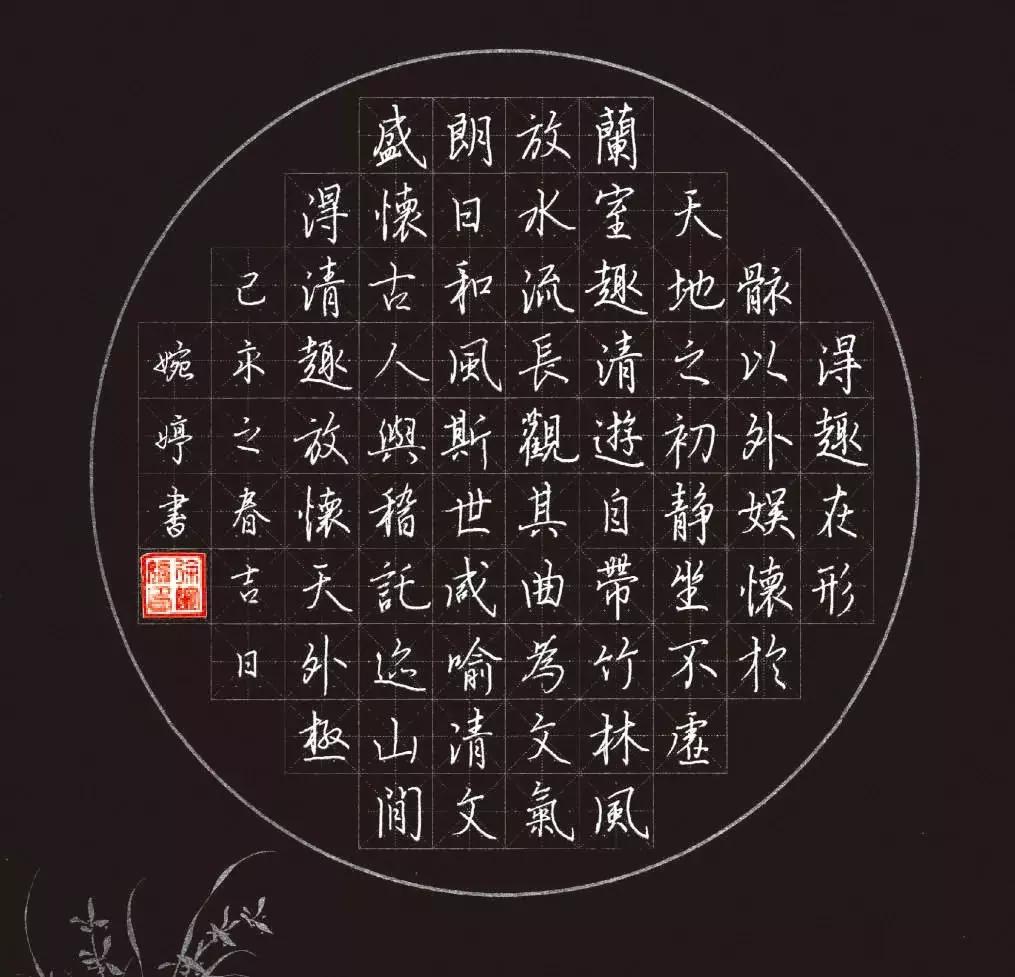 得趣在形
骸以外娱懷於
天地之初静坐不虛
蘭室趣清遊自帶竹林風
放水流長觀其曲為文氣
朗日和風斯世咸喻清文
盛懷古人與稽託迹山間
得清趣放懷天外極
己之春吉日
婉婷書